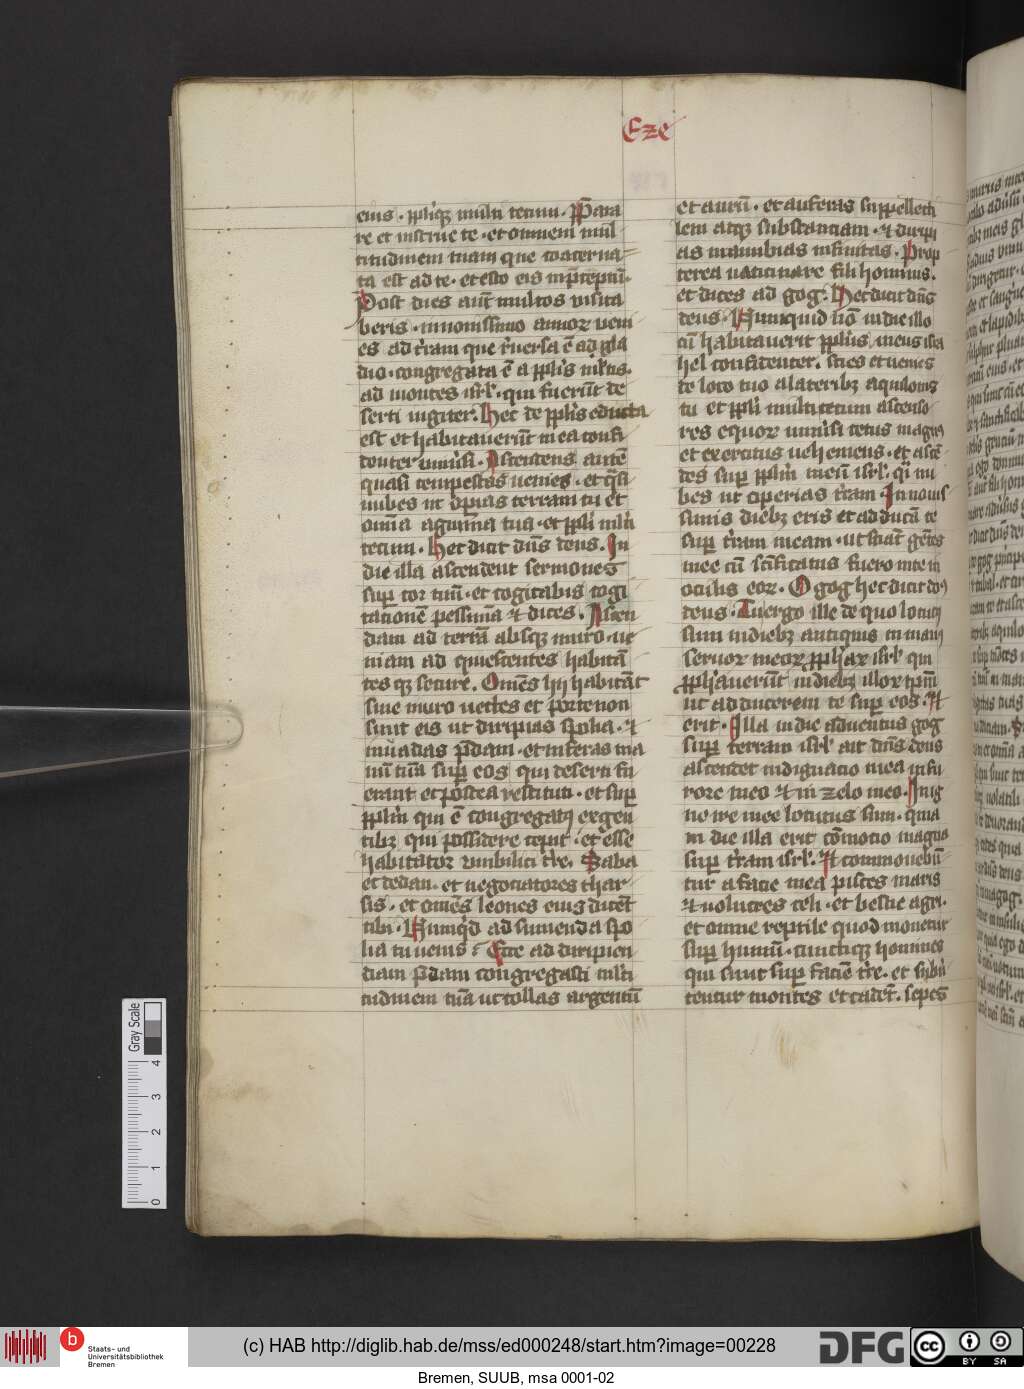 Eze
eius · ppliqz multi tecum · Prepara
re et instrue te · et omnem mul
titudinem tuam que coaterua
ta est ad te · et esto eis inpreceptū ·
Post dies aut̄ multos visita
beris · in nouissimo annoꝝ veni
es ad tr̄am que r̄uersa ē ad gla
dio · congregata ē a ppl̓is ml̓tis ·
ad montes isrl̓ · qui fuerūt de
serti iugiter · Hec de ppl̓is educta
est et habitauerūt in ea confi
denter vnius̓i · Ascendens autē
quasi tempestas uenies · et q̄si
nubes ut op̓ias terram tu et
omīa agmīa tua · et ppl̓i ml̓ti
tecum · Hec dicit dn̄s deus · In
die illa ascendent sermones
sup̱ cor tuū · et cogitabis cogi
tationē pessimā et dices · Ascen
dam ad terrā absqz muro · ue
niam ad quiescentes habitā
tes qz secure · Om̄s hij habitāt
sine muro uectes et porte non
sunt eis ut diripias spolia · et
inuadas p̄dam · et inferas ma
nū tuā sup̱ eos qui deserti fu
erant et postea restituti · et sup̱
ppl̓m qui ē congregatꝰ ex gen
tibz qui possidere cepit · et esse
habitator vmbilici tr̄e · Saba
et dedan · et negociatores thar
sis · et omēs leones eius dicēt
tibi · Numq̓d ad sumenda spo
lia tu uenis? Ecce ad diripien
dam p̄dam congregasti multi
tudinem tuā ut tollas argentū
et aurū · et auferas suppellecti
lem atqz substanciam · et diripi
as manubias infinitas · Prop
terea uaticinare fili hominis ·
et dices ad gog · Hec dicit dn̄s
deus · Numquid nō in die illo
cū habitauerit ppl̓us meus isra
hel confidenter · scies et uenies
de loco tuo a lateribz aquilonis
tu et ppl̓i multi tecum ascenso
res equoꝝ uniuṡi cetus magnꝰ
et exercitus uehemens · et ascē
des sup̱ ppl̓m meū isrl̓ · q̓i nu
bes ut operias tr̄am · In nouis
simis diebz eris et adducā te
sup̱ tr̄am meam · ut sciāt gētes
mee cū sc̄ificatus fuero in te in
oculis eoꝝ · O gog hec dicit dn̄s
deus · Tu ergo ille de quo locutꝰ
sum in diebz antiquis in manu
seruoꝝ meoꝝ pph̓aꝝ isrl̓ qui
pph̓auerūt in diebz illoꝝ tp̄m
ut adducerem te sup̱ eos · Et
erit · Illa in die aduentus gog
sup̱ terram isrl̓ ait dn̄s deus
ascendet indignacio mea in fu
rore meo et in zelo meo · In ig
ne ire mee locutus sum · quia
in die illa erit cōmotio magna
sup̱ tr̄am isrl̓ · Et commouebū
tur a facie mea pisces maris
et uolucres celi · et bestie agri ·
et omne reptile quod mouetur
sup̱ humū · cunctiqz homines
qui sunt sup̱ faciē tr̄e · et sb̓u̓
tentur montes et cadēt · sepes
Gray Scale
0 1 2 3 4
Staats- und
Universitätsbibliothek
Bremen
(c) HAB http://diglib.hab.de/mss/ed000248/start.htm?image=00228
DFG
cc BY SA
Bremen, SUUB, msa 0001-02